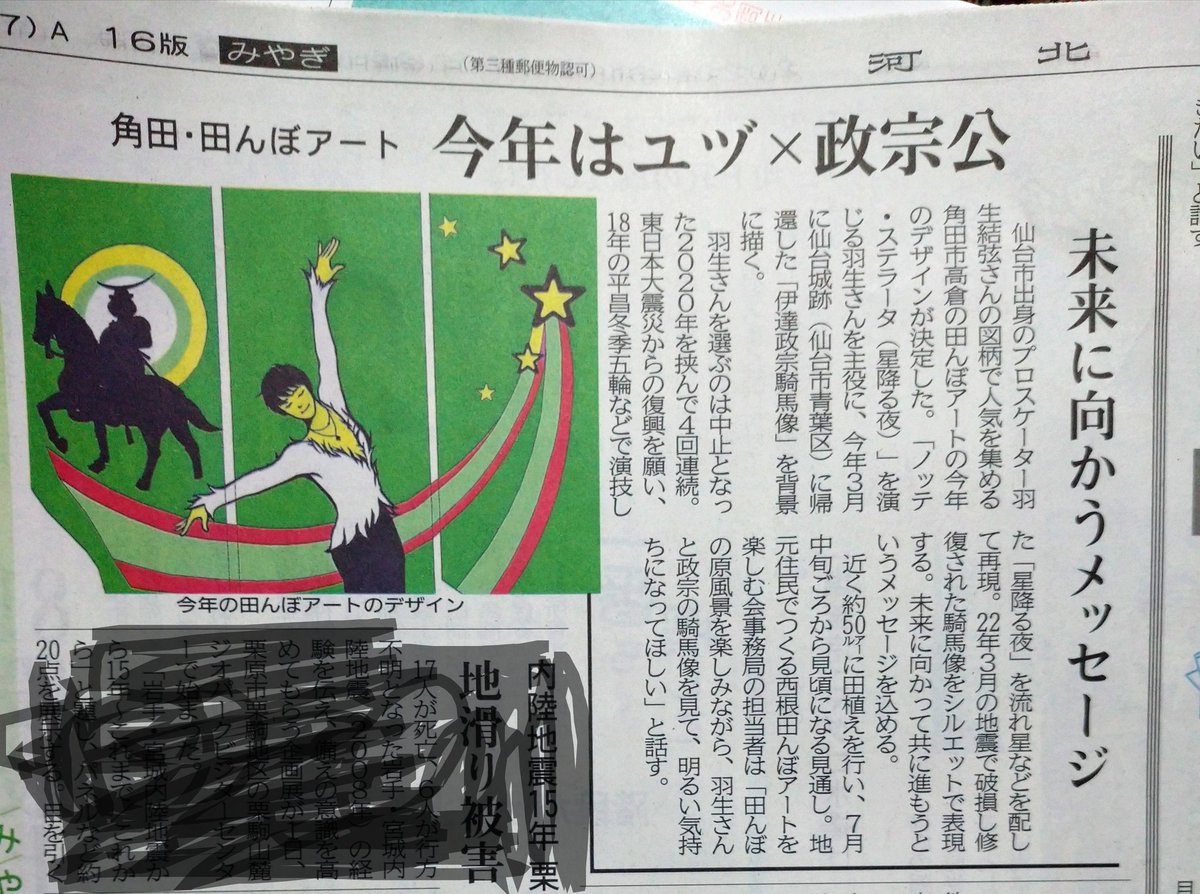 7) A 16版 みやぎ (第三種郵便物認可) 河北
角田・田んぼアート 今年はユヅ×政宗公
未来に向かうメッセージ
仙台市出身のプロスケーター羽
生結弦さんの図柄で人気を集める
角田市高倉の田んぼアートの今年
のデザインが決定した。「ノッテ
・ステラータ(星降る夜)」を演
じる羽生さんを主役に、今年3月
に仙台城跡(仙台市青葉区)に帰
還した「伊達政宗騎馬像」を背景
に描く。
羽生さんを選ぶのは中止となっ
た2020年を挟んで4回連続。
東日本大震災からの復興を願い、
18年の平昌冬季五輪などで演技し
た「星降る夜」を流れ星などを配し
て再現。22年3月の地震で破損し修
復された騎馬像をシルエットで表現
する。未来に向かって共に進もうと
いうメッセージを込める。
近く約50㌃に田植えを行い、7月
中旬ごろから見頃になる見通し。地
元住民でつくる西根田んぼアートを
楽しむ会事務局の担当者は「田んぼ
の原風景を楽しみながら、羽生さん
と政宗の騎馬像を見て、明るい気持
ちになってほしい」と話す。
今年の田んぼアートのデザイン
内陸地震15年 栗
地滑り被害
17人が死亡、6人が行方
不明となった岩手・宮城内
陸地震(2008年)の経
験を伝え、備えの意識を高
めてもらう企画展が1日、
栗原市栗駒地区の栗駒山麓
ジオパークビジターセンタ
ーで始まった。
20点を展示する。
たい」と話す
みや